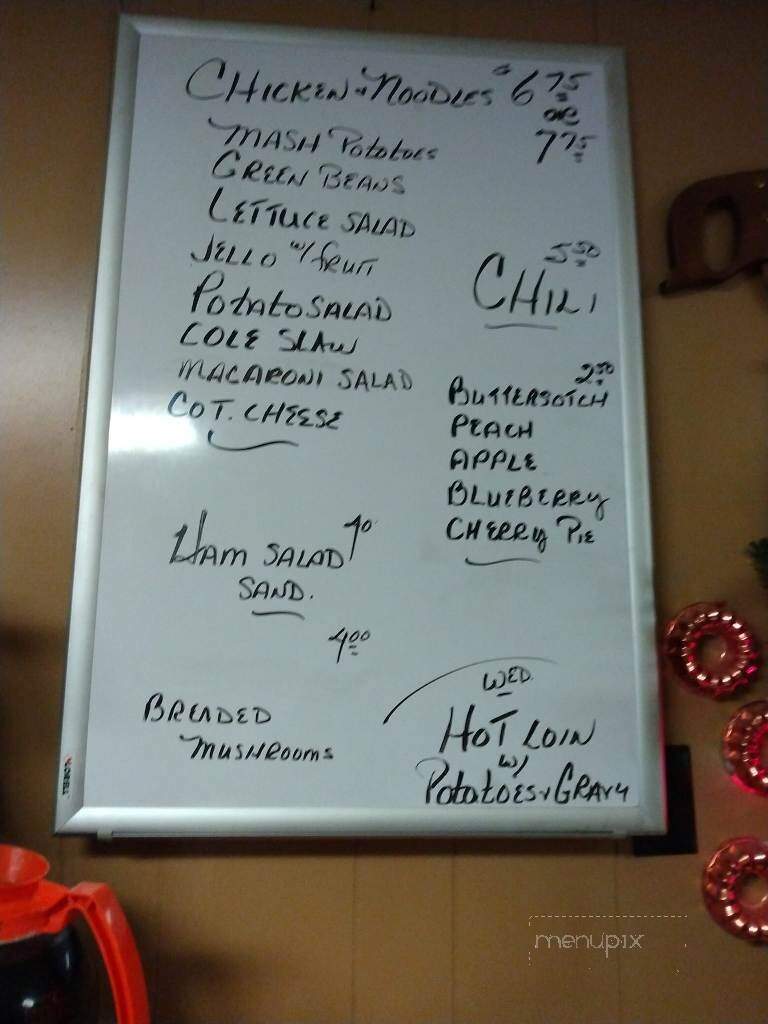 CHICKEN & NOODLES $6 75
OR
7 75
MASH POTATOES
GREEN BEANS
LETTUCE SALAD
JELLO W/ FRUIT
POTATO SALAD
COLE SLAW
MACARONI SALAD
COT. CHEESE
5 50
CHILI
2 50
BUTTERSOTCH
PEACH
APPLE
BLUEBERRY
CHERRY PIE
HAM SALAD
SAND.
4 00
BREADED
MUSHROOMS
WED.
HOT LOIN
W/
POTATOES & GRAVY
menupix